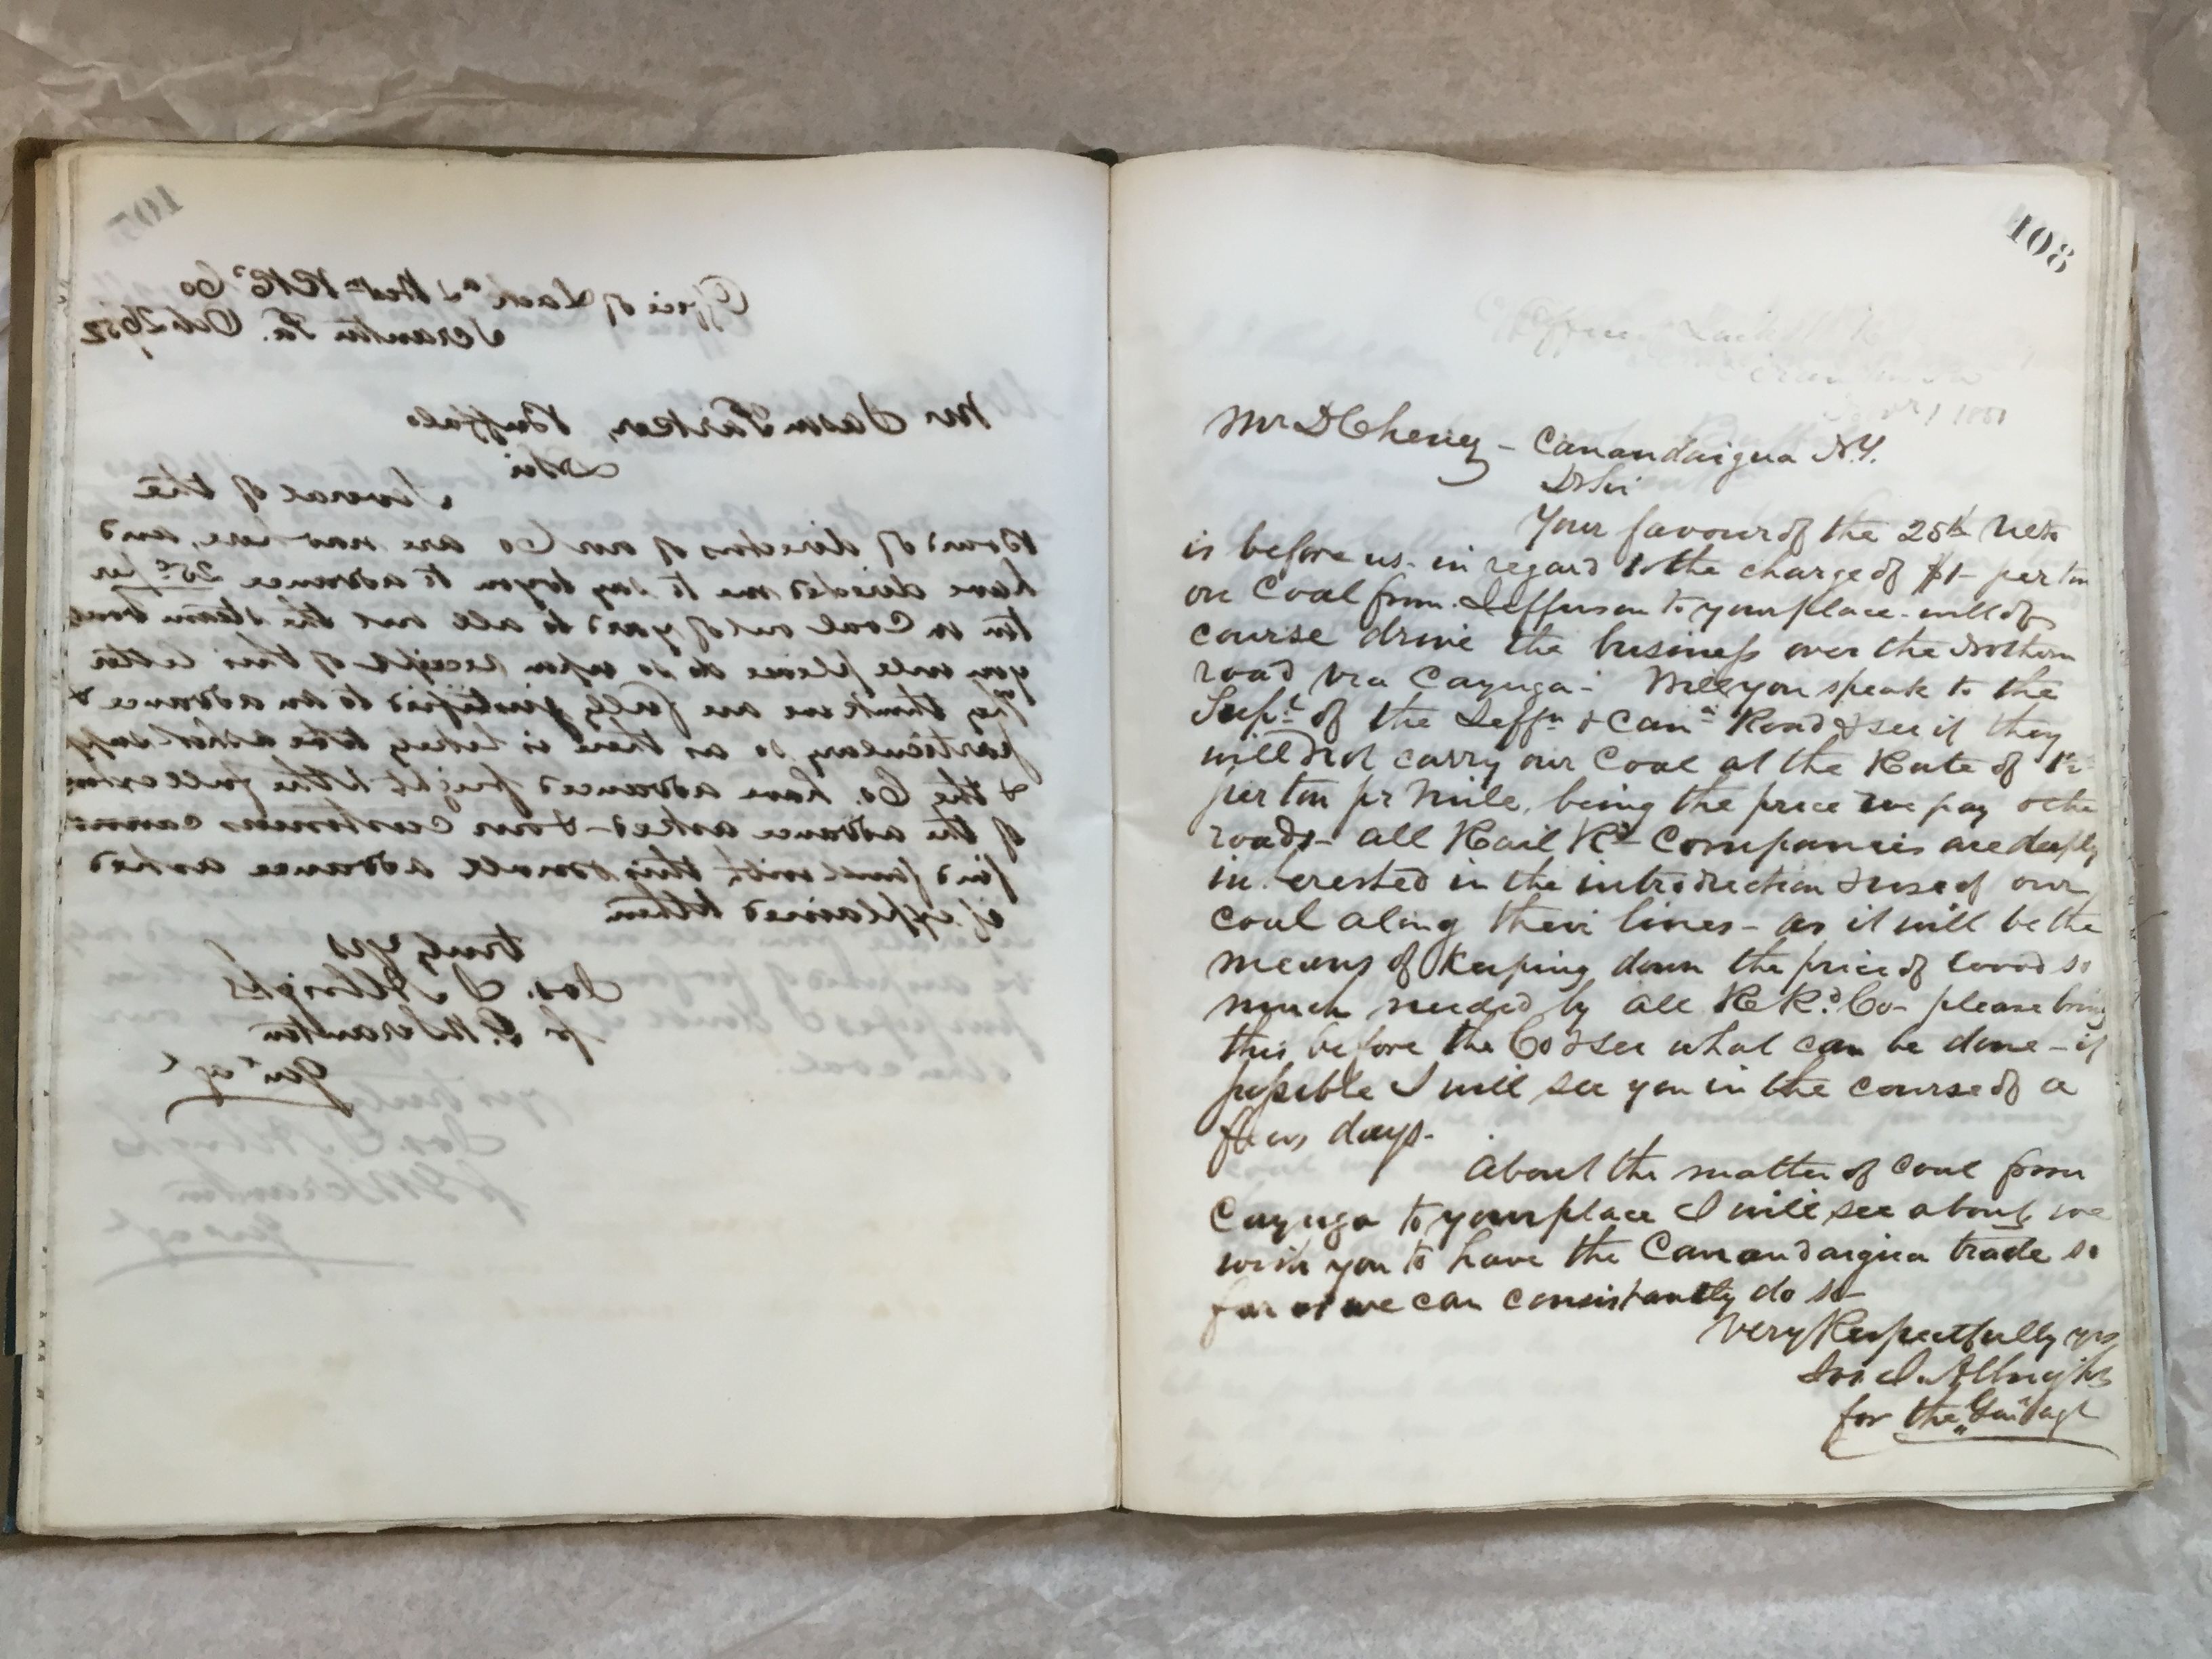 107
Office of Lacka & Westn RRd Co
Scranton Pa. Oct 26/52
Mr Jason Parker, Buffalo
Sir
Several of the
Board of directors of our Co are now here, and
have directed me to say to you to advance 25c per
ton on Coal out of yard to all but the steam boats
you will please do so upon receipt of this letter
They think we are fully justified to an advance &
particularly so as there is likely to be a short supply
& the Co. have advanced freight to the full extent
of the advance asked - & our customers cannot
find fault with this small advance asked
if explained to them
truly yrs
Jos. J Albright
for S. W Scranton
Genl agt
108
Mr D Cheney - Canandaigua N.Y.
Dr Sir
Your favour of the 25th
is before us - in regard to the charge of $1 - per ton
on Coal from Jefferson to your place - will of
course drive the business over the Northern
road via Cayuga - Will you speak to the
Supt of the Jeffn & Cana Road & see if they
will not carry our Coal at the Rate of
per ton pr Mile, being the price we pay other
roads - all Rail Rd Companies are deeply
interested in the introduction & use of our
coal along their lines - as it will be the
means of Keeping down the price of wood so
much needed by all RRd. Co - please bring
this before the Co & see what can be done - if
possible I will see you in the course of a
few days -
About the matter of Coal from
Cayuga to your place I will see about, we
wish you to have the Canandaigua trade so
far as we can consistantly do so -
Very Respectfully yrs
Jos. J. Albright
for the Genl agt